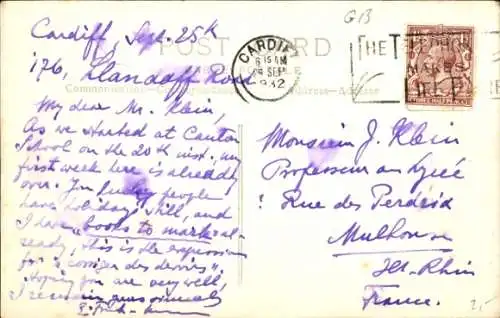 GB
Cardiff, Sept. 25th
POST CARD
176, Llandaff Road
CARDIFF
8 15 AM
SEP
1932
THE TELEPHONE
My dear Mr. Klein,
As we started at Canton
School on the 20th inst. my
first week here is already
over. You lucky people
have holidays still, and
I have "books to mark" al-
ready, this is the expression
for "corriger des devoirs".
Hoping you are very well,
I remain yours sincerely
Monsieur J. Klein
Professeur au Lycée
Rue des
Mulhouse
Ht-Rhin
France.